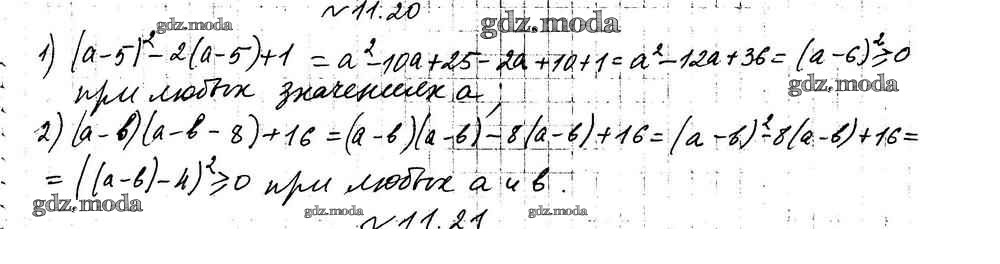 №11.20
gdz.moda gdz.moda
1) (a-5)²-2(a-5)+1 = a²-10a+25-2a+1a+1 = a²-12a+36 = (a-6)²≥0
gdz.moda
при любых значениях a,
2) (a-b)(a-b-8)+16 = (a-b)(a-b)-8(a-b)+16 = (a-b)²-8(a-b)+16 =
= ((a-b)-4)²≥0 при любых a и b.
gdz.moda gdz.moda gdz.moda
№11.21